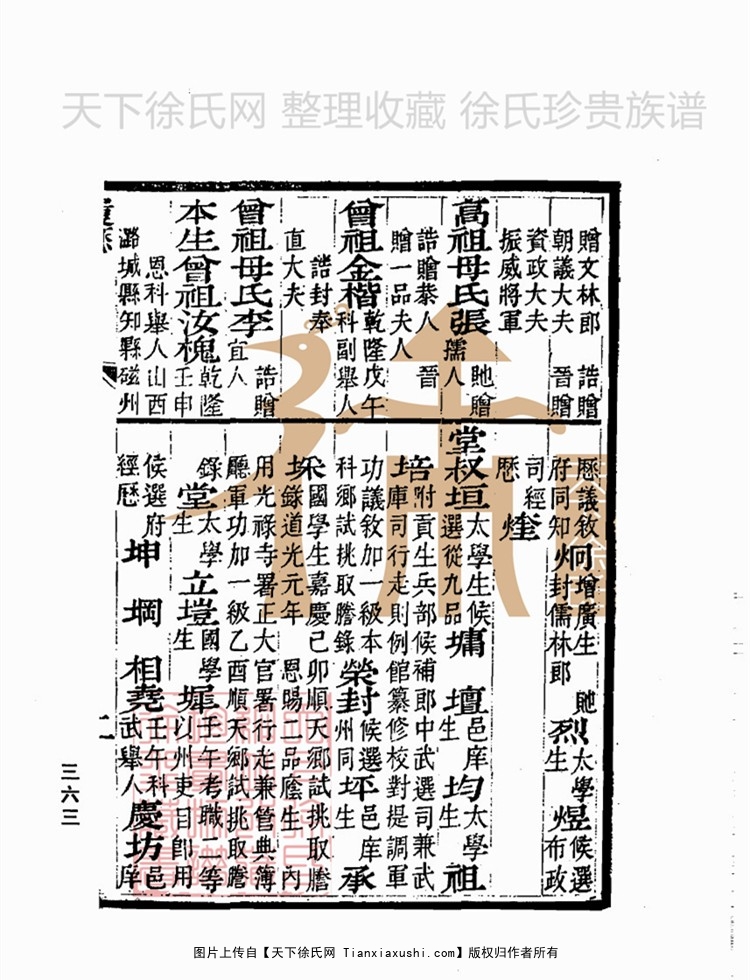 天下徐氏网 整理收藏 徐氏珍贵族谱
贈文林郎 誥贈
朝議大夫 晉贈
資政大夫
振威將軍
高祖母氏張 貤贈孺人
誥贈恭人 晉
贈一品夫人
曾祖金楷 乾隆戊午科副舉人
誥封奉
直大夫
曾祖母氏李 誥贈宜人
本生曾祖汝槐 乾隆壬申
恩科舉人山西
潞城縣知縣磁州
歷議敘府同知 炯 增廣生 貤封儒林郎 烈 太學生 煜 候選布政
司經歷 煃
堂叔垣 太學生候選從九品 墉 壇 邑庠生 均 太學生 祖
培 附貢生兵部候補郎中武選司兼武庫司行走則例館纂修校對提調軍
功議敘加一級本科鄉試挑取謄錄 榮封 候選州同 坪 邑庠生 承
埰 國學生嘉慶己卯順天鄉試挑取謄錄道光元年 恩賜二品廕生 內
用光祿寺署正大官署行走兼管典簿廳軍功加一級乙酉順天鄉試挑取謄
錄 堂 太學生 立塏 國學生 墀 壬午考職二等以州吏目即用
候選府經歷 坤 堈 相堯 壬午科武舉人 慶坊 邑庠
三六三
图片上传自【天下徐氏网 Tianxiaxushi.com】版权归作者所有